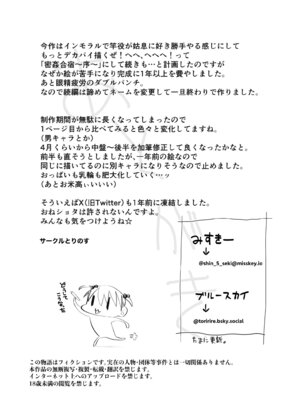 あとがき
今作はインモラルで竿役が姑息に好き勝手やる感じにして
もっとデカパイ描くぜ！へへ、へへっ！って
「密姦合宿～序～」にして続きも…と計画したのですが
なぜか絵が苦手になり完成に1年以上を費やしました。
あと眼精疲労のダブルパンチ。
なので続編は諦めてネームを変更して一旦終わりで作りました。
制作期間が無駄に長くなってしまったので
1ページ目から比べてみると色々と変化してますね。
（男キャラとか）
4月くらいから中盤～後半を加筆修正して良くなったかなと。
前半も直そうとしましたが、一年前の絵なので
同じに描いてるのに別キャラになりそうなので止めました。
おっぱいも乳輪も肥大化していく…ッ
（あとお米高ぃぃいい）
そういえばX（旧Twitter）も1年前に凍結しました。
おねショタは許されないんですよ。
みんなも気をつけようね☆
サークルとりのす
みすきー
↓
@shin_5_seki@misskey.io
ブルースカイ
↓
@toririre.bsky.social
たまに更新。
この物語はフィクションです。実在の人物・団体等事件とは一切関係ありません。
本作品の無断複写・複製・転載・翻訳を禁じます。
インターネット上へのアップロードを禁じます。
18歳未満の閲覧を禁じます。